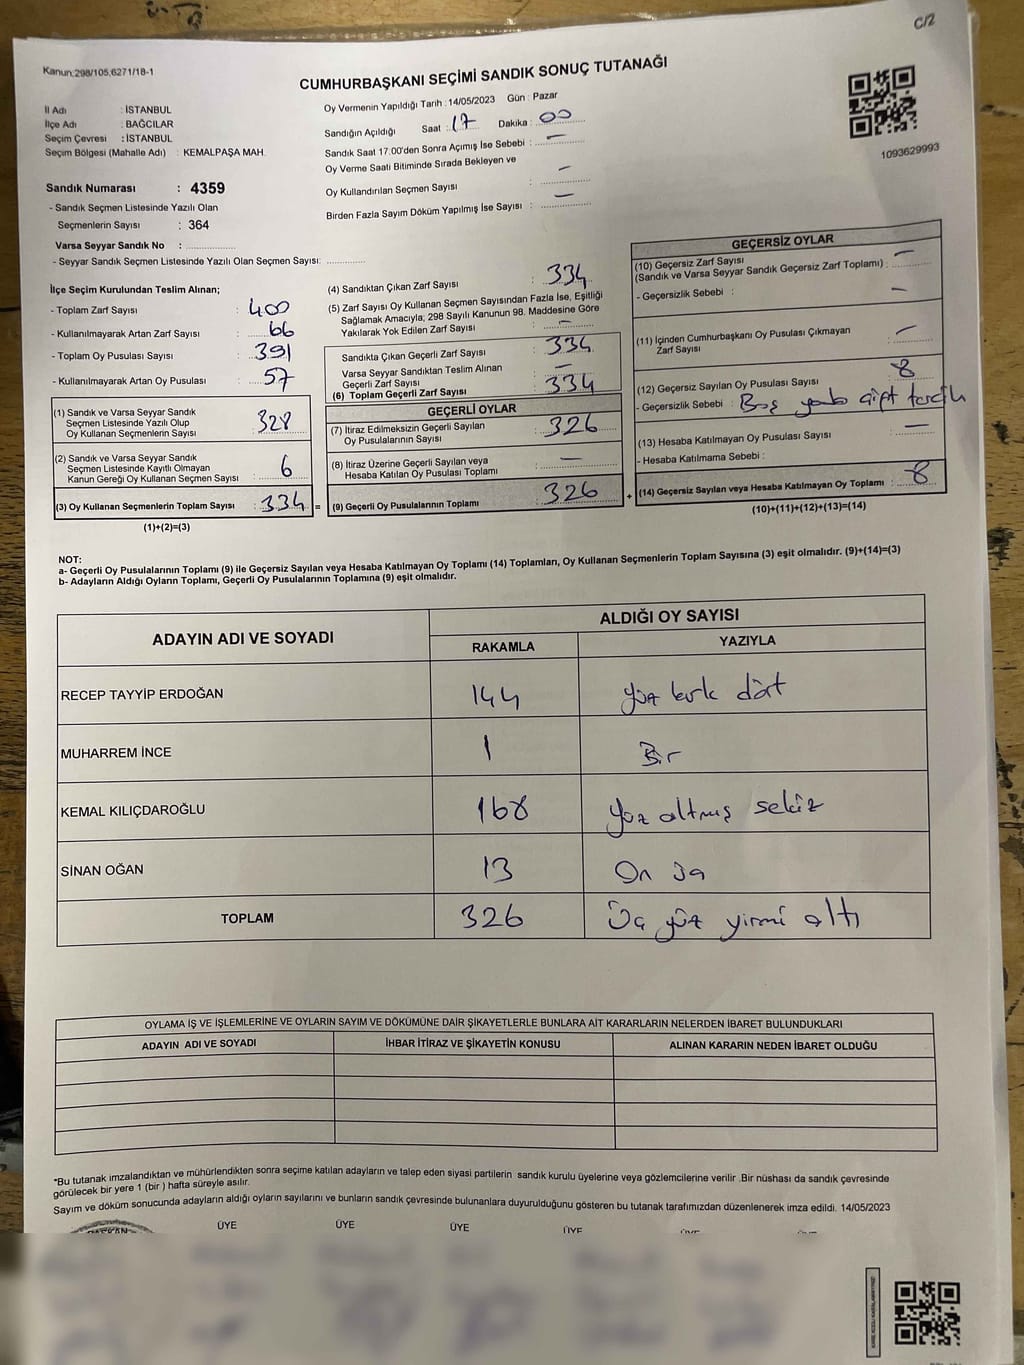 C/2
Kanun:298/105,6271/18-1
CUMHURBAŞKANI SEÇİMİ SANDIK SONUÇ TUTANAĞI
İl Adı : İSTANBUL
İlçe Adı : BAĞCILAR
Seçim Çevresi : İSTANBUL
Seçim Bölgesi (Mahalle Adı) : KEMALPAŞA MAH.
Oy Vermenin Yapıldığı Tarih : 14/05/2023 Gün : Pazar
Sandığın Açıldığı Saat : 17 Dakika : 00
Sandık Saat 17:00'den Sonra Açımış İse Sebebi : —
Oy Verme Saati Bitiminde Sırada Bekleyen ve
Oy Kullandırılan Seçmen Sayısı : —
Birden Fazla Sayım Döküm Yapılmış İse Sayısı : —
1093629993
Sandık Numarası : 4359
- Sandık Seçmen Listesinde Yazılı Olan
Seçmenlerin Sayısı : 364
Varsa Seyyar Sandık No :
- Seyyar Sandık Seçmen Listesinde Yazılı Olan Seçmen Sayısı:
İlçe Seçim Kurulundan Teslim Alınan;
- Toplam Zarf Sayısı : 400
- Kullanılmayarak Artan Zarf Sayısı : 66
- Toplam Oy Pusulası Sayısı : 391
- Kullanılmayarak Artan Oy Pusulası : 57
(1) Sandık ve Varsa Seyyar Sandık
Seçmen Listesinde Yazılı Olup
Oy Kullanan Seçmenlerin Sayısı : 328
(2) Sandık ve Varsa Seyyar Sandık
Seçmen Listesinde Kayıtlı Olmayan
Kanun Gereği Oy Kullanan Seçmen Sayısı : 6
(3) Oy Kullanan Seçmenlerin Toplam Sayısı : 334 =
(1)+(2)=(3)
(4) Sandıktan Çıkan Zarf Sayısı : 334
(5) Zarf Sayısı Oy Kullanan Seçmen Sayısından Fazla İse, Eşitliği
Sağlamak Amacıyla; 298 Sayılı Kanunun 98. Maddesine Göre
Yakılarak Yok Edilen Zarf Sayısı : —
Sandıkta Çıkan Geçerli Zarf Sayısı : 334
Varsa Seyyar Sandıktan Teslim Alınan
Geçerli Zarf Sayısı : —
(6) Toplam Geçerli Zarf Sayısı : 334
GEÇERLİ OYLAR
(7) İtiraz Edilmeksizin Geçerli Sayılan
Oy Pusulalarının Sayısı : 326
(8) İtiraz Üzerine Geçerli Sayılan veya
Hesaba Katılan Oy Pusulası Toplamı : —
(9) Geçerli Oy Pusulalarının Toplamı : 326 +
GEÇERSİZ OYLAR
(10) Geçersiz Zarf Sayısı
(Sandık ve Varsa Seyyar Sandık Geçersiz Zarf Toplamı) : —
- Geçersizlik Sebebi : —
(11) İçinden Cumhurbaşkanı Oy Pusulası Çıkmayan
Zarf Sayısı : —
(12) Geçersiz Sayılan Oy Pusulası Sayısı : 8
- Geçersizlik Sebebi : Boş çift tercih
(13) Hesaba Katılmayan Oy Pusulası Sayısı : —
- Hesaba Katılmama Sebebi :
(14) Geçersiz Sayılan veya Hesaba Katılmayan Oy Toplamı : 8
(10)+(11)+(12)+(13)=(14)
NOT:
a- Geçerli Oy Pusulalarının Toplamı (9) ile Geçersiz Sayılan veya Hesaba Katılmayan Oy Toplamı (14) Toplamları, Oy Kullanan Seçmenlerin Toplam Sayısına (3) eşit olmalıdır. (9)+(14)=(3)
b- Adayların Aldığı Oyların Toplamı, Geçerli Oy Pusulalarının Toplamına (9) eşit olmalıdır.
ADAYIN ADI VE SOYADI ALDIĞI OY SAYISI
RAKAMLA YAZIYLA
RECEP TAYYİP ERDOĞAN 144 yüz kırk dört
MUHARREM İNCE 1 Bir
KEMAL KILIÇDAROĞLU 168 Yüz altmış sekiz
SİNAN OĞAN 13 On üç
TOPLAM 326 Üç yüz yirmi altı
OYLAMA İŞ VE İŞLEMLERİNE VE OYLARIN SAYIM VE DÖKÜMÜNE DAİR ŞİKAYETLERLE BUNLARA AİT KARARLARIN NELERDEN İBARET BULUNDUKLARI
ADAYIN ADI VE SOYADI İHBAR İTİRAZ VE ŞİKAYETİN KONUSU ALINAN KARARIN NEDEN İBARET OLDUĞU
*Bu tutanak imzalandıktan ve mühürlendikten sonra seçime katılan adayların ve talep eden siyasi partilerin sandık kurulu üyelerine veya gözlemcilerine verilir .Bir nüshası da sandık çevresinde
görülecek bir yere 1 (bir ) hafta süreyle asılır.
Sayım ve döküm sonucunda adayların aldığı oyların sayılarını ve bunların sandık çevresinde bulunanlara duyurulduğunu gösteren bu tutanak tarafımızdan düzenlenerek imza edildi. 14/05/2023
BAŞKAN ÜYE ÜYE ÜYE ÜYE ÜYE